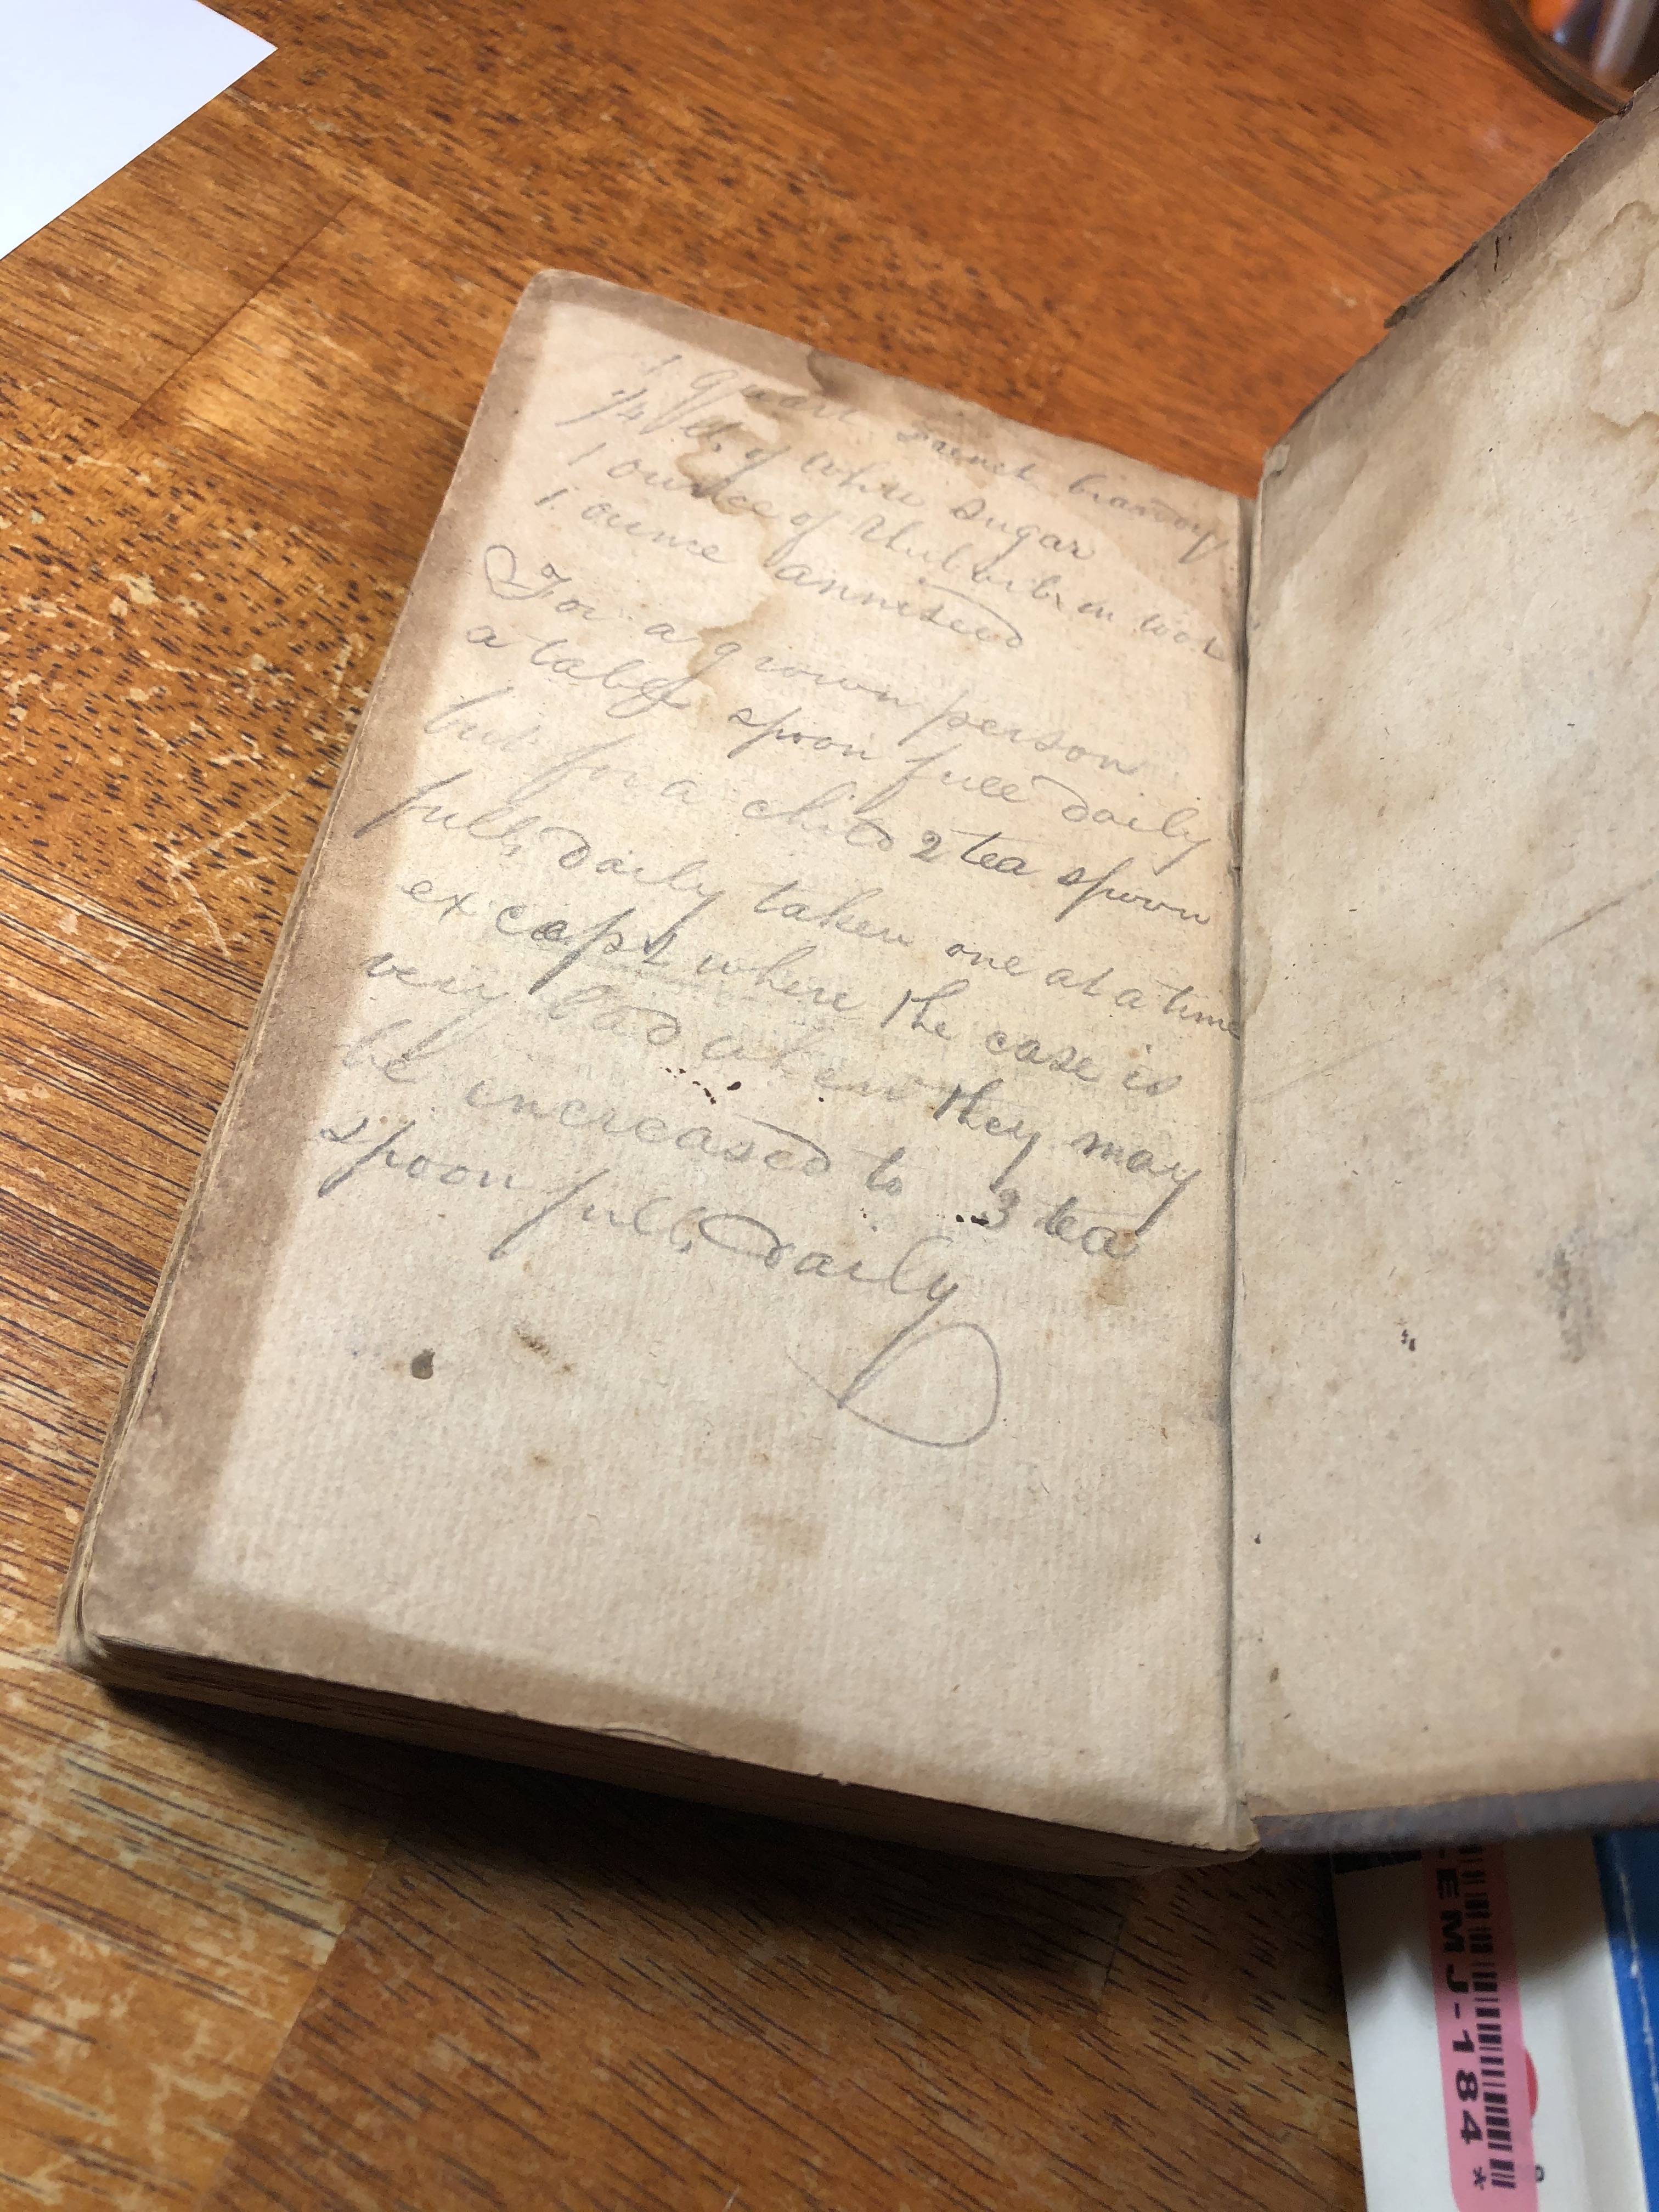 1 quart French brandy
1/4 lb. of white sugar
1 ounce of Rhubarb in root
1 ounce anniseed
For a grown person
a table spoon full daily
but for a child 2 tea spoon
full, daily taken one at a time
except where the case is
very bad when they may
be increased to 3 tea
spoon full, daily
EMJ-184